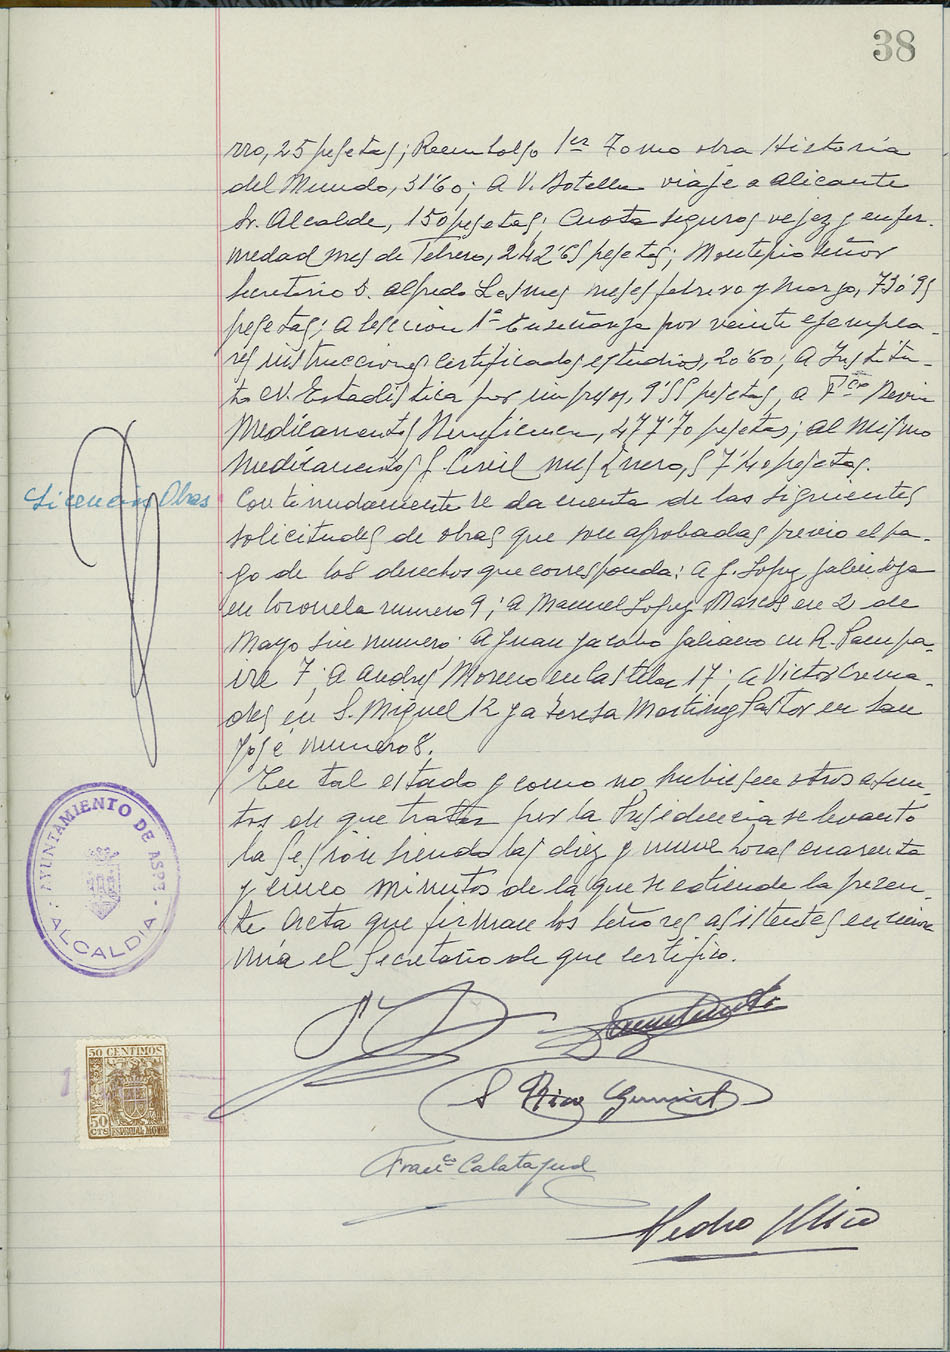 38
rro, 25 pesetas; Reembolso 1er Tomo obra Historia
del Mundo, 31'60; A V. Botella viaje a Alicante
Sr. Alcalde, 150 pesetas; Cuota seguros vejez y enfer-
medad mes de Febrero, 242'65 pesetas; Montepio señor
Secretario D. Alfredo meses febrero y Marzo, 730'95
pesetas; A Sección 1ª Enseñanza por veinte ejempla-
res instrucciones certificados estudios, 20'60; A Institu-
to N. Estadística por impresos, 9'55 pesetas, a Fco
Medicamentos Beneficencia, 477'70 pesetas; al mismo
Medicamentos G. Civil mes Enero, 574'40 pesetas.
Licencias Obras
Continuadamente se da cuenta de las siguientes
solicitudes de obras que son aprobadas previo el pa-
go de los derechos que corresponda: A J. Lopez
en Coronela numero 9; A Manuel Lopez Marcos en 2 de
Mayo sin numero: A Juan Jacobo Galiano en R.
7; A Andrés Moreno en Castelar 17; a Victor Crema-
des en S. Miguel 12 y a Teresa Martinez Pastor en San
José numero 8.
En tal estado y como no hubiesen otros asun-
tos de que tratar por la Presidencia se levantó
la sesión siendo las diez y nueve horas cuarenta
y cinco minutos de la que se extiende la presen-
te Acta que firman los señores asistentes en
mía el Secretario de que certifico.
AYUNTAMIENTO DE ASPE
ALCALDIA
50 CENTIMOS
50
CTS ESPECIAL MOVIL
S Rico
Franco Calatayud
Pedro